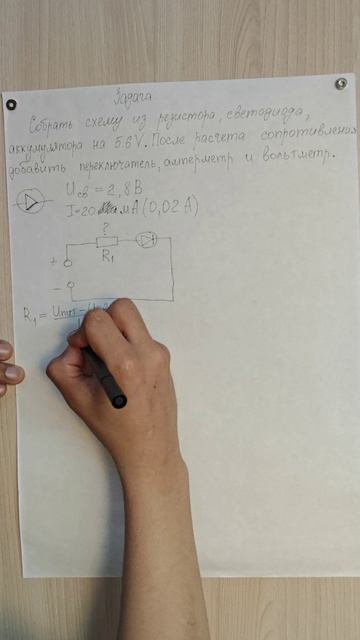 Задача
Собрать схему из резистора, светодиода,
аккумулятора на 5.6V. После расчета сопротивления
добавить переключатель, амперметр и вольтметр.
Uсв = 2,8В
I=20 мА (0,02А)
?
R₁
+
-
R₁ = Uпит - U